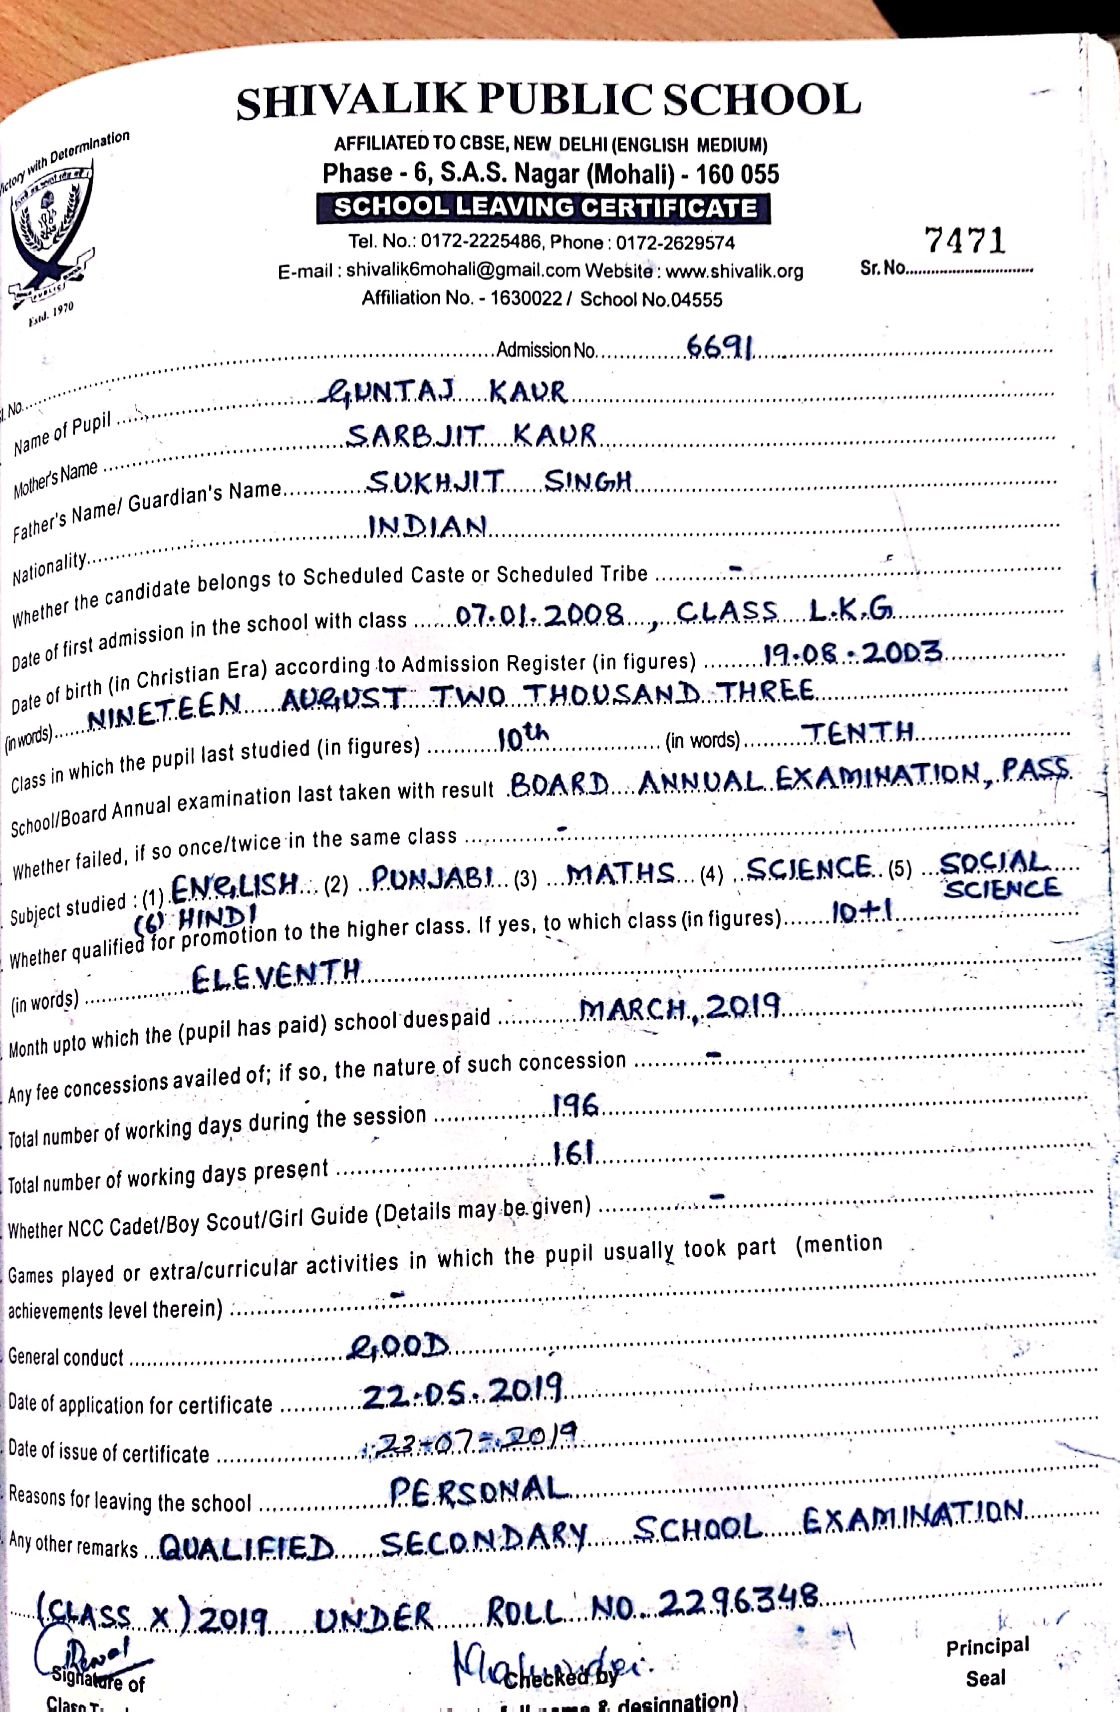 SHIVALIK PUBLIC SCHOOL
AFFILIATED TO CBSE, NEW DELHI (ENGLISH MEDIUM)
Phase - 6, S.A.S. Nagar (Mohali) - 160 055
SCHOOL LEAVING CERTIFICATE
Tel. No.: 0172-2225486, Phone : 0172-2629574
E-mail : shivalik6mohali@gmail.com Website : www.shivalik.org
Affiliation No. - 1630022 / School No.04555
Victory with Determination
PUBLIC
Estd. 1970
7471
Sr. No.
Sl. No. Admission No. 6691
Name of Pupil GUNTAJ KAUR
Mother's Name SARBJIT KAUR
Father's Name/ Guardian's Name SUKHJIT SINGH
Nationality INDIAN
Whether the candidate belongs to Scheduled Caste or Scheduled Tribe -
Date of first admission in the school with class 07.01.2008, CLASS L.K.G
Date of birth (in Christian Era) according to Admission Register (in figures) 19.08.2003
(in words) NINETEEN AUGUST TWO THOUSAND THREE
Class in which the pupil last studied (in figures) 10th (in words) TENTH
School/Board Annual examination last taken with result BOARD ANNUAL EXAMINATION, PASS
Whether failed, if so once/twice in the same class -
Subject studied : (1) ENGLISH (2) PUNJABI (3) MATHS (4) SCIENCE (5) SOCIAL SCIENCE
(6) HINDI
Whether qualified for promotion to the higher class. If yes, to which class (in figures) 10+1
(in words) ELEVENTH
Month upto which the (pupil has paid) school duespaid MARCH, 2019
Any fee concessions availed of; if so, the nature of such concession -
Total number of working days during the session 196
Total number of working days present 161
Whether NCC Cadet/Boy Scout/Girl Guide (Details may be given) -
Games played or extra/curricular activities in which the pupil usually took part (mention
achievements level therein) -
General conduct GOOD
Date of application for certificate 22.05.2019
Date of issue of certificate 23-07-2019
Reasons for leaving the school PERSONAL
Any other remarks QUALIFIED SECONDARY SCHOOL EXAMINATION
(CLASS X) 2019 UNDER ROLL NO. 2296348
Signature of Checked by Principal
Seal
& designation)